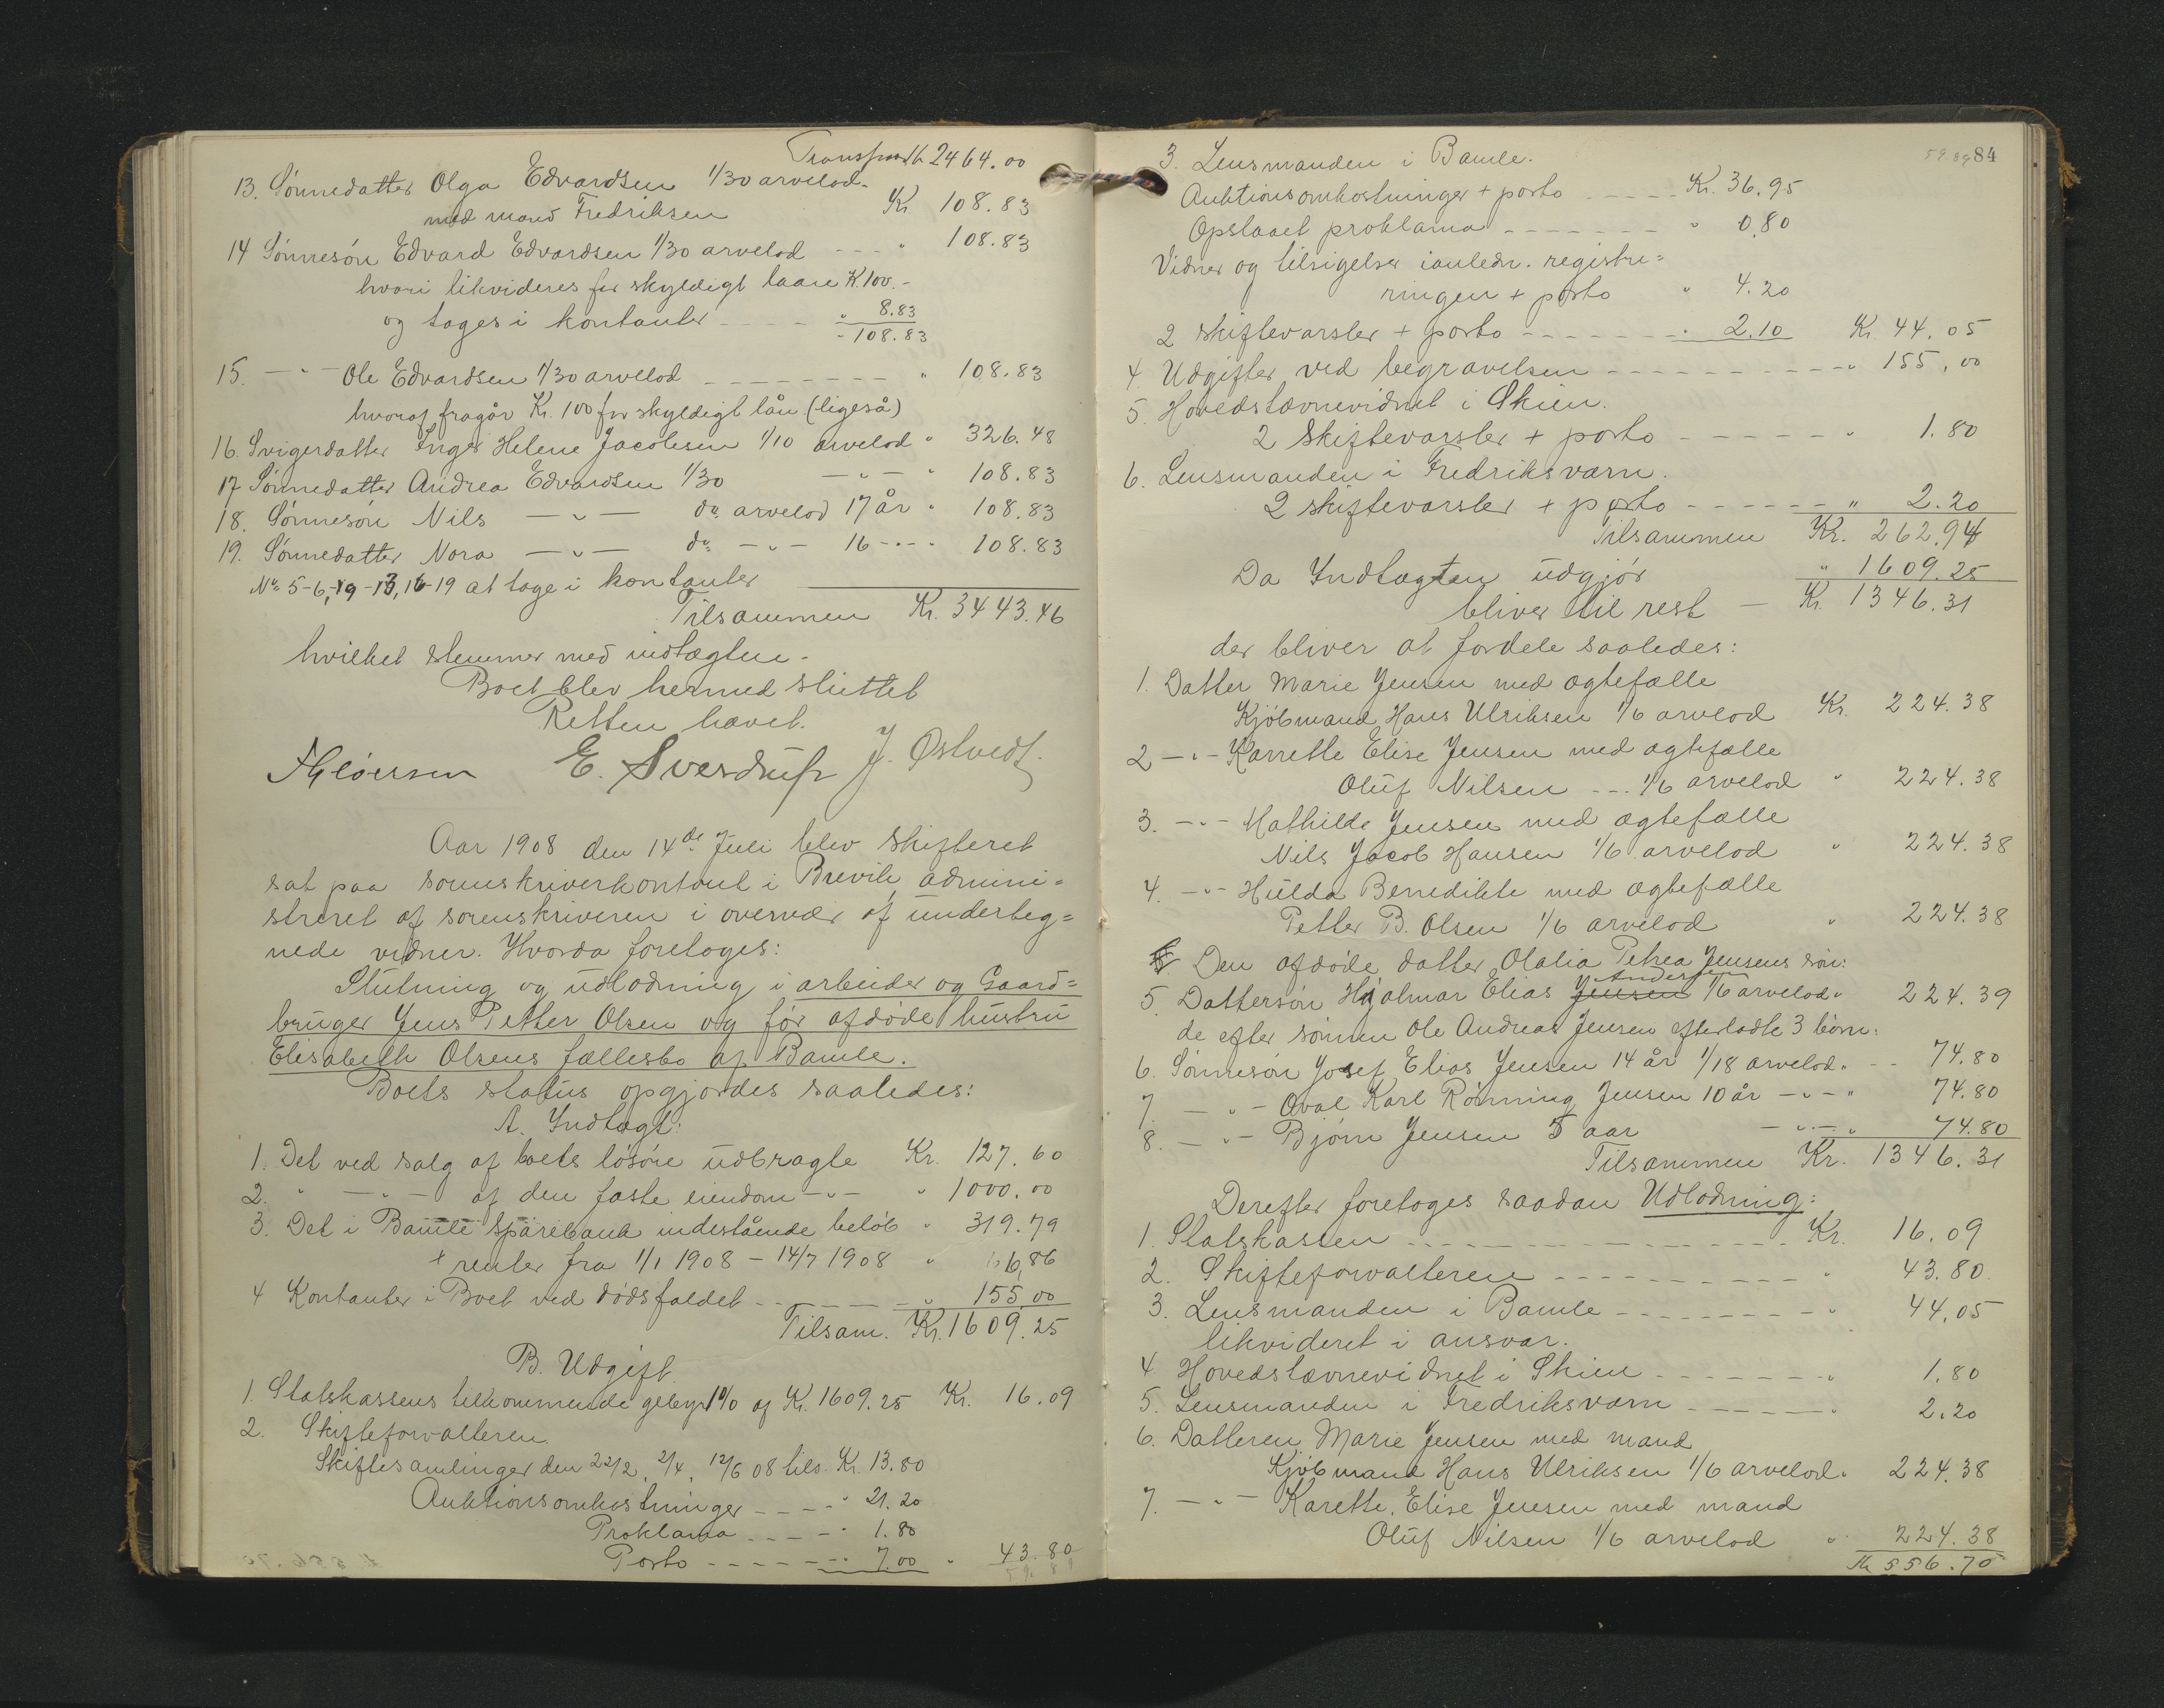 Transport k 2464.00
13. Sønnedatter Olga Edvardsen 1/30 arvelod
med mand Fredriksen Kr 108.83
14 Sønnesøn Edvard Edvardsen 1/30 arvelod - - - " 108.83
hvori likvideres for skyldigt laan K. 100.-
og tages i kontanter - - - - " 8.83
- 108.83
15. - " - Ole Edvardsen 1/30 arvelod - - - - - - - " 108.83
hvoraf fragår Kr. 100 for skyldigt lån (ligeså)
16. Svigerdatter Inger Helene Jacobsen 1/10 arvelod " 326.48
17 Sønnedatter Andrea Edvardsen 1/30 - " - " 108.83
18. Sønnesøn Nils - " - do. arvelod 17 år " 108.83
19. Sønnedatter Nora - " - do. - " - 16 - " - - 108.83
No 5-6, 9-13, 16-19 at tage i kontanter
Tilsammen Kr. 3443.46
hvilket stemmer med indtægten.
Boet blev hermed sluttet
Retten hævet.
E. Sverdrup J. Østvedt
Aar 1908 den 14de Juli blev Skifteret
sat paa sorenskriverkontoret i Brevik admini=
streret af sorenskriveren i overvær af underteg=
nede vidner. Hvorda foretoges:
Slutning og udlodning i arbeider og Gaard=
bruger Jens Petter Olsen og før afdøde hustru
Elisabeth Olsens fællesbo af Bamle.
Boets status opgjordes saaledes:
A. Indtægt:
1. Det ved salg af boets løsøre udbragte Kr. 127.60
2. " - " - af den faste eiendom - " - " 1000.00
3. Det i Bamle Sparebank indestående beløb " 319.79
+ renter fra 1/1 1908 - 14/7 1908 " 6,86
4 Kontanter i Boet ved dødsfaldet - - - - - - " 155,00
Tilsam. Kr. 1609.25
B. Udgift.
1. Statskassens tilkommende gebyr 1% af Kr. 1609.25 Kr. 16.09
2. Skifteforvalteren
Skiftesamlinger den 22/2, 2/4, 12/6 08 tils. Kr. 13.80
Auktionsomkostninger - - - - " 21.20
Proklama - - - - " 1.80
Porto - - - - - - " 7.00 " 43.80
84
3. Lensmanden i Bamle.
Auktionsomkostninger + porto - - - - - Kr. 36.95
Opslaaet proklama - - - - - - - " 0,80
Vidner og tilsigelser ianledn. registre=
ringen + porto " 4.20
2 skiftevarsler + porto - - - - - - - " 2.10 Kr 44,05
4. Udgifter ved begravelsen - - - - - - - - - - " 155,00
5. Hovedstævnevidnet i Skien.
2 Skiftevarsler + porto - - - - - - " 1.80
6. Lensmanden i Fredriksværn.
2 skiftevarsler + porto - - - - - - " 2.20
Tilsammen Kr. 262.94
Da Indtægten udgjør " 1609.25
bliver til rest - Kr. 1346.31
der bliver at fordele saaledes:
1. Datter Marie Jensen med ægtefælle
Kjøbmand Hans Ulriksen 1/6 arvelod Kr. 224.38
2 - " - Karrette Elise Jensen med ægtefælle
Oluf Nilsen - - 1/6 arvelod " 224.38
3. - " - Mathilde Jensen med ægtefælle
Nils Jacob Hansen 1/6 arvelod " 224.38
4. - " - Hulda Benedikte med ægtefælle
Petter B. Olsen 1/6 arvelod " 224.38
Den afdøde datter Olalia Petrea Jensens søn:
Andersen
5. Dattersøn Hjalmar Elias Jensen 1/6 arvelod " 224.39
de efter sønnen Ole Andreas Jensen efterladte 3 børn:
6. Sønnesøn Josef Elias Jensen 14 år 1/18 arvelod " - - 74.80
7. - " - Oval Karl Rønning Jensen 10 år - " - " 74.80
8. - " - Bjørn Jensen 5 aar - " - " 74.80
Tilsammen Kr. 1346.31
Derefter foretoges saadan Udlodning:
1. Statskassen - - - - - - - - - - - - Kr. 16.09
2. Skifteforvalteren - - - - - - - - - - " 43.80
3. Lensmanden i Bamle - - - - - - - - " 44,05
likvideret i ansvar.
4. Hovedstævnevidnet i Skien - - - - - - - " 1.80
5. Lensmanden i Fredriksværn - - - - - - " 2.20
6. Datteren Marie Jensen med mand
Kjøbmand Hans Ulriksen 1/6 arvelod " 224.38
7. - " - Karette Elise Jensen med mand
Oluf Nilsen 1/6 arvelod " 224.38
Kr 556.70